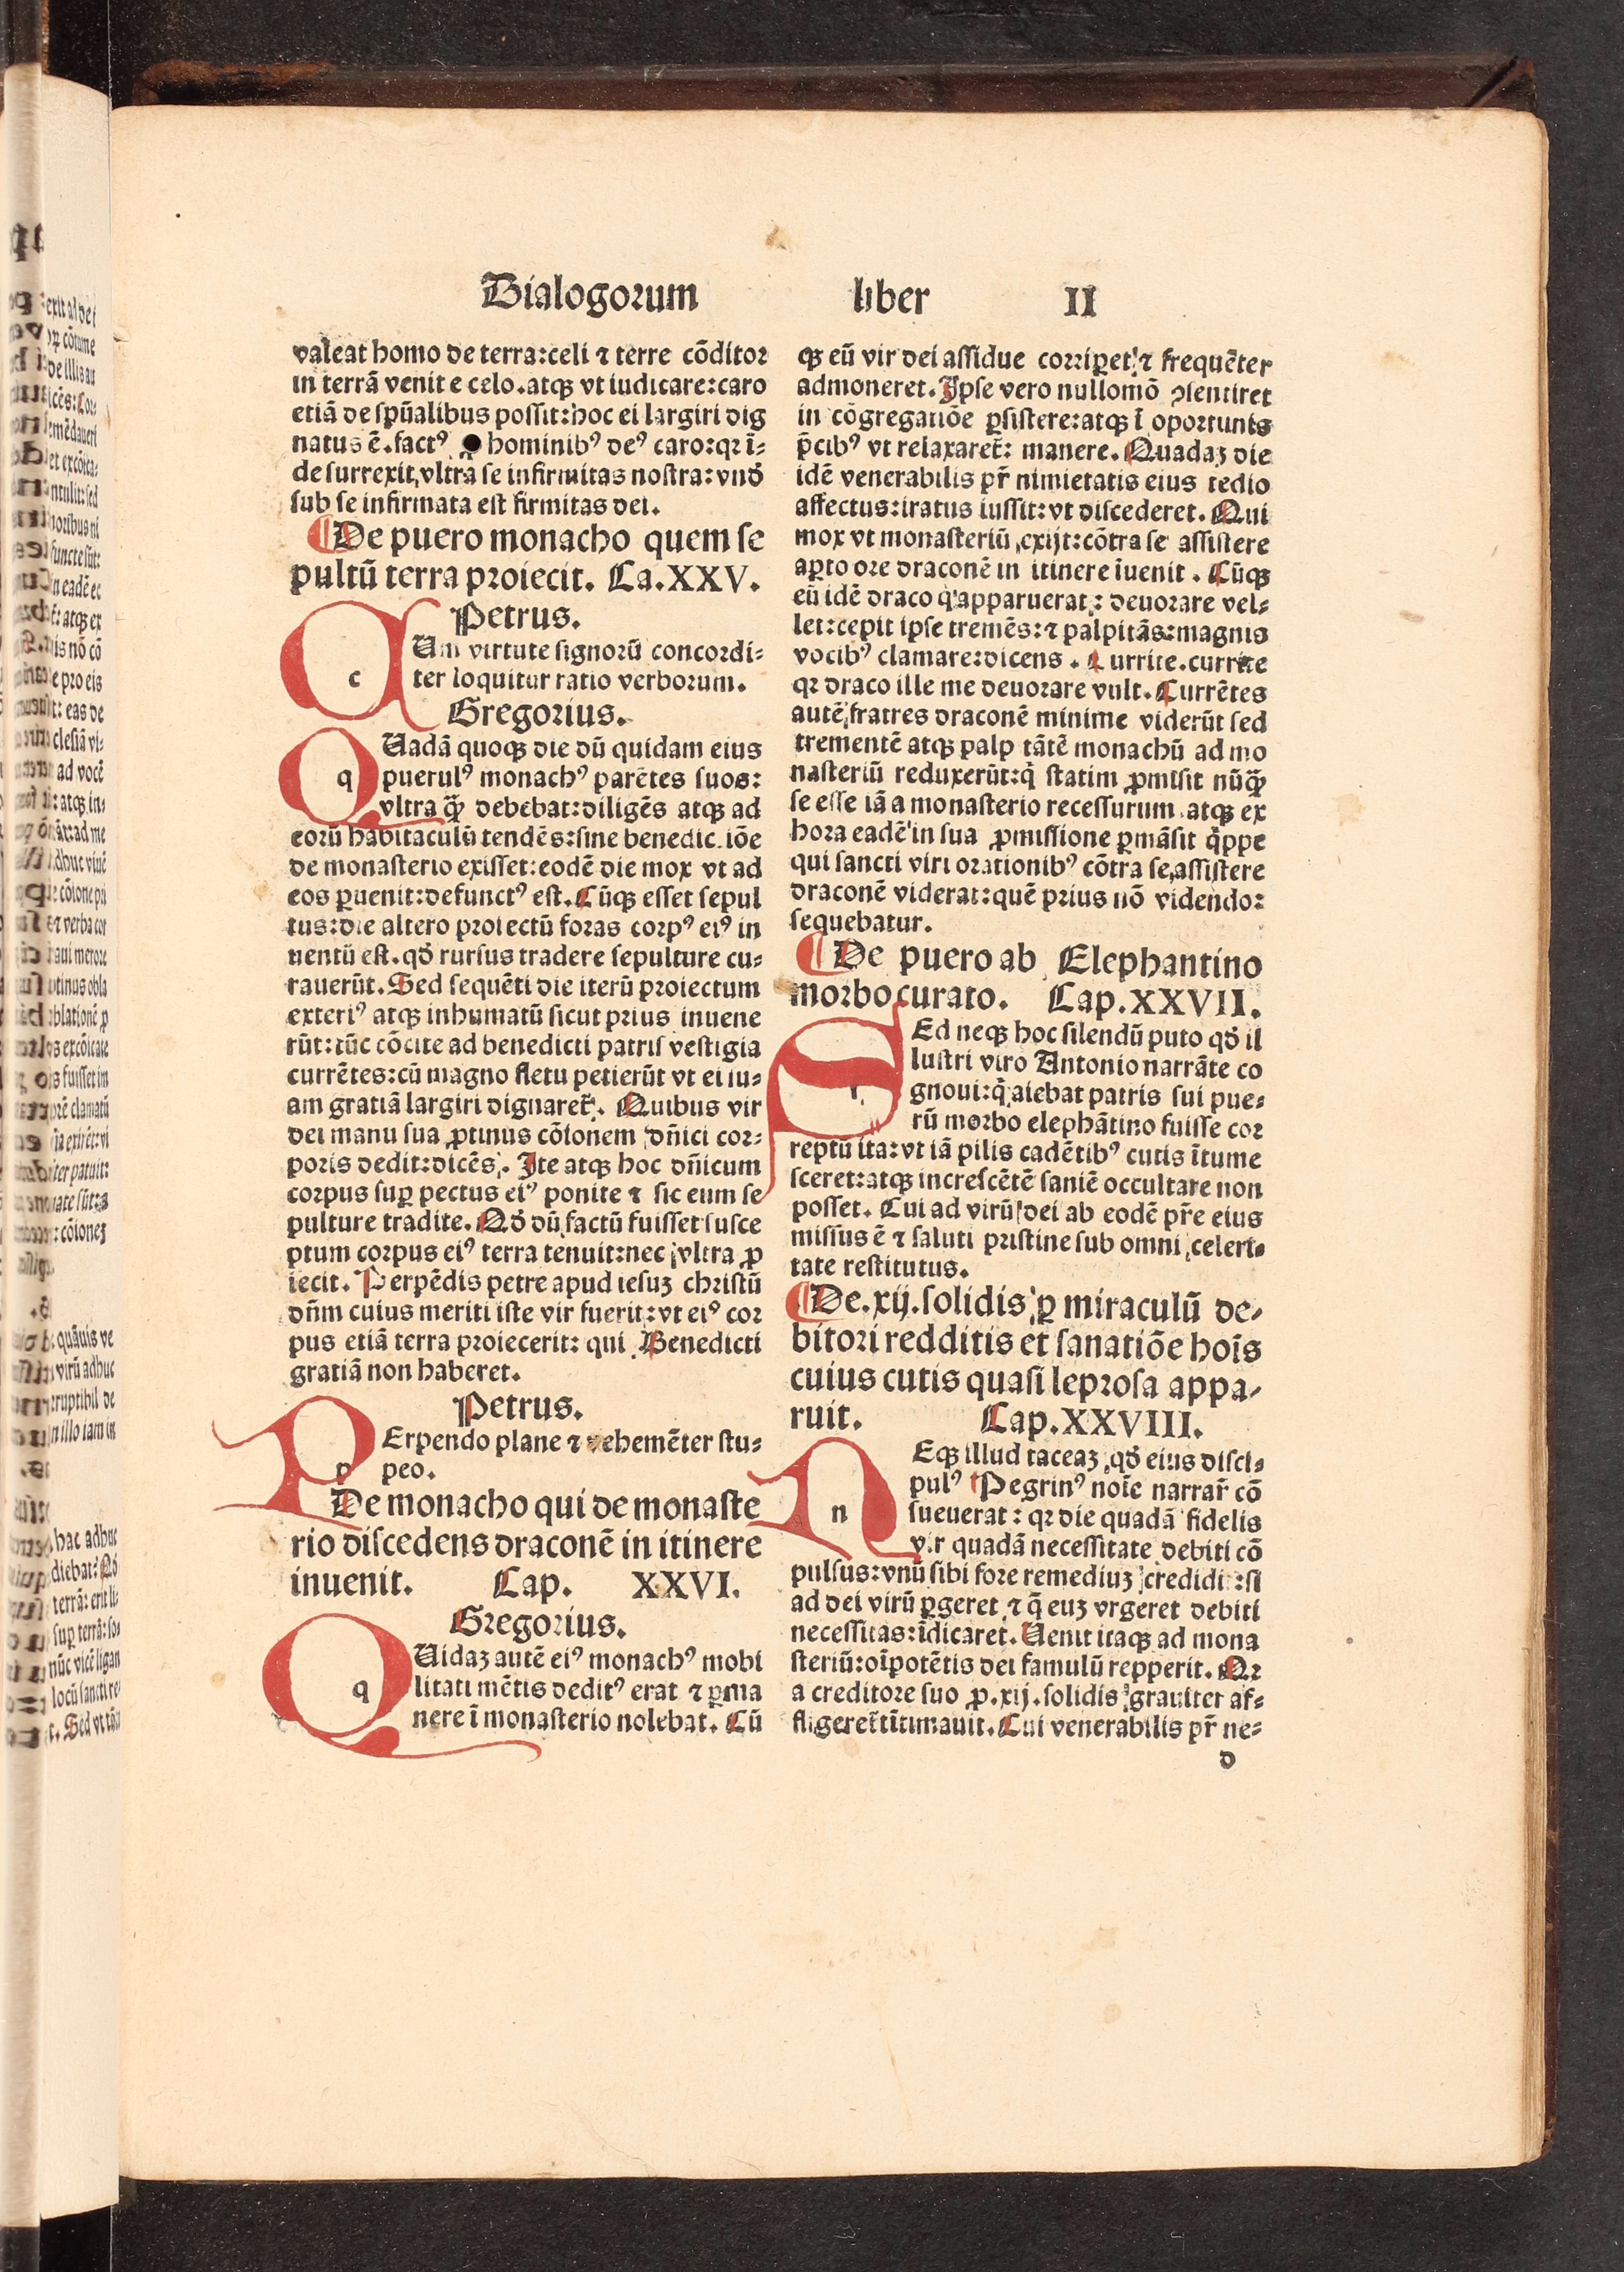 Dialogorum liber II
valeat homo de terra:celi ⁊ terre cōditor
in terrā venit e celo.atqꝫ vt iudicare:caro
etiā de spūalibus possit:hoc ei largiri dig
natus ē.factꝰ hominibꝰ deꝰ caro:qꝛ ī-
de surrexit vltra se infirmitas nostra:vnđ
sub se infirmata est firmitas dei.
¶De puero monacho quem se
pultū terra proiecit. Ca.XXV.
Petrus.
c Um virtute signorū concordi-
ter loquitur ratio verborum.
Gregorius.
q Uadā quoqꝫ die dū quidam eius
puerulꝰ monachꝰ parētes suos:
vltra qꝫ̄ debebat:diligēs atqꝫ ad
eorū habitaculū tendēs:sine benedic iōe
de monasterio exisset:eodē die mox vt ad
eos ꝑuenit:defunctꝰ est.Cūqꝫ esset sepul
tus:die altero proiectū foras corpꝰ eiꝰ in
uentū est.qđ rursus tradere sepulture cu-
rauerūt.Sed sequēti die iterū proiectum
exteriꝰ atqꝫ inhumatū sicut prius inuene
rūt:tūc cōcite ad benedicti patris vestigia
currētes:cū magno fletu petierūt vt ei su-
am gratiā largiri dignaret̄. Quibus vir
dei manu sua ꝓtinus cōionem dn̄ici cor-
poris dedit:dicēs. Ite atqꝫ hoc dn̄icum
corpus suꝑ pectus eiꝰ ponite ⁊ sic eum se
pulture tradite. Qđ dū factū fuisset susce
ptum corpus eiꝰ terra tenuit:nec vltra ꝓ
iecit. Perpēdis petre apud iesuꝫ christū
dn̄m cuius meriti iste vir fuerit:vt eiꝰ cor
pus etiā terra proiecerit: qui Benedicti
gratiā non haberet.
Petrus.
p Erpendo plane ⁊ vehemēter stu-
peo.
De monacho qui de monaste
rio discedens draconē in itinere
inuenit. Cap. XXVI.
Gregorius.
q Uidaꝫ autē eiꝰ monachꝰ mobi
litati mētis deditꝰ erat ⁊ ꝑma
nere ī monasterio nolebat. Cū
qꝫ eū vir dei assidue corriꝑet:⁊ frequēter
admoneret.Ipse vero nullomō ꝯsentiret
in cōgregatiōe ꝑsistere:atqꝫ ī oportunis
p̄cibꝰ vt relaxaret̄: manere.Quadaꝫ die
idē venerabilis pr̄ nimietatis eius tedio
affectus:iratus iussit:vt discederet.Qui
mox vt monasteriū exijt:cōtra se assistere
aꝑto ore draconē in itinere īuenit . Cūqꝫ
eū idē draco q̇ apparuerat: deuorare vel-
let:cepit ipse tremēs:⁊ palpitās:magnis
vocibꝰ clamare:dicens . Currite.currite
qꝛ draco ille me deuorare vult.Currētes
autē fratres draconē minime viderūt sed
trementē atqꝫ palp tātē monachū ad mo
nasteriū reduxerūt:q̇ statim ꝓmisit nūqꝫ̄
se esse iā a monasterio recessurum atqꝫ ex
hora eadē in sua ꝓmissione ꝑmāsit q̇ppe
qui sancti viri orationibꝰ cōtra se assistere
draconē viderat:quē prius nō videndo:
sequebatur.
¶De puero ab Elephantino
morbo curato. Cap.XXVII.
Ed neqꝫ hoc silendū puto qđ il
lustri viro Antonio narrāte co
gnoui:q̇ aiebat patris sui pue-
rū morbo elephātino fuisse cor
reptū ita:vt iā pilis cadētibꝰ cutis ītume
sceret:atqꝫ increscētē saniē occultare non
posset. Cui ad virū dei ab eodē pr̄e eius
missus ē ⁊ saluti pristine sub omni celeri-
tate restitutus.
¶De.xij.solidis ꝑ miraculū de-
bitori redditis et sanatiōe hoīs
cuius cutis quasi leprosa appa-
ruit. Cap.XXVIII.
n Eqꝫ illud taceaꝫ qđ eius disci-
pulꝰ Pegrinꝰ noīe narrar̄ cō
sueuerat: qꝛ die quadā fidelis
vir quadā necessitate debiti cō
pulsus:vnū sibi fore remediuꝫ credidi :si
ad dei virū ꝑgeret ⁊ q̄ euꝫ vrgeret debiti
necessitas:īdicaret.Uenit itaqꝫ ad mona
steriū:oīpotētis dei famulū repperit.Qꝛ
a creditore suo ꝓ.xij.solidis grauiter af-
fligeret̄ ītimauit.Cui venerabilis pr̄ ne-
d